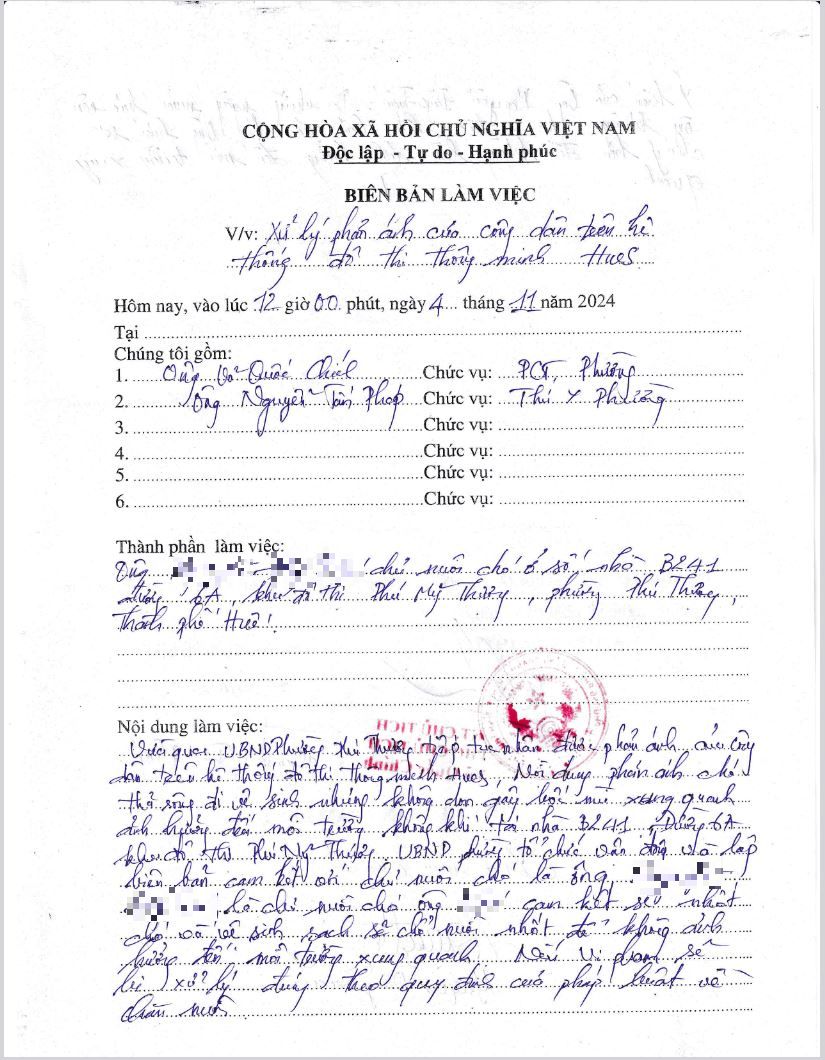 CỘNG HÒA XÃ HỘI CHỦ NGHĨA VIỆT NAM
Độc lập - Tự do - Hạnh phúc
BIÊN BẢN LÀM VIỆC
V/v: Xử lý phản ánh của công dân trên hệ
thống đô thị thông minh HueS
Hôm nay, vào lúc 12 giờ 00 phút, ngày 4 tháng 11 năm 2024
Tại
Chúng tôi gồm:
1. Ông Võ Quốc Chức vụ: PCT, Phường
2. Ông Nguyễn Tấn Pháp Chức vụ: Thú Y Phường
3. Chức vụ:
4. Chức vụ:
5. Chức vụ:
6. Chức vụ:
Thành phần làm việc:
Ông chủ nuôi chó ở số nhà B241
đường 6A, khu đô thị Phú Mỹ Thượng, phường Phú Thượng,
thành phố Huế!
Nội dung làm việc:
Vừa qua UBND Phường Phú Thượng tiếp tục nhận được phản ánh của công
dân trên hệ thống đô thị thông minh HueS, Nội dung phản ánh chó
thả rông đi vệ sinh nhưng không dọn gây hôi mùi xung quanh
ảnh hưởng đến môi trường không khí tại nhà B241, Đường 6A
khu đô thị Phú Mỹ Thượng. UBND phường tổ chức vận động và lập
biên bản cam kết với chủ nuôi chó là ông
là chủ nuôi chó ông cam kết sẽ nhốt
chó và vệ sinh sạch sẽ chổ nuôi nhốt để không ảnh
hưởng đến môi trường xung quanh. Nếu vi phạm sẽ
bị xử lý đúng theo quy định của pháp luật về
chăn nuôi